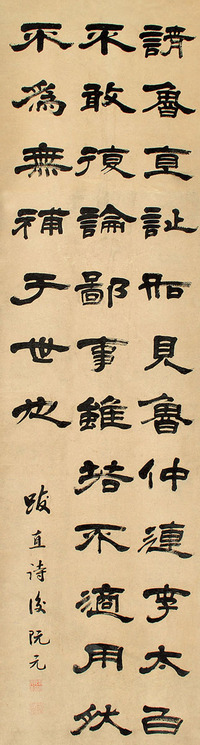 讀魯直詩如見魯仲連李太白
不敢復論鄙事雖若不適用然
不為無補于世也
跋直詩後阮元